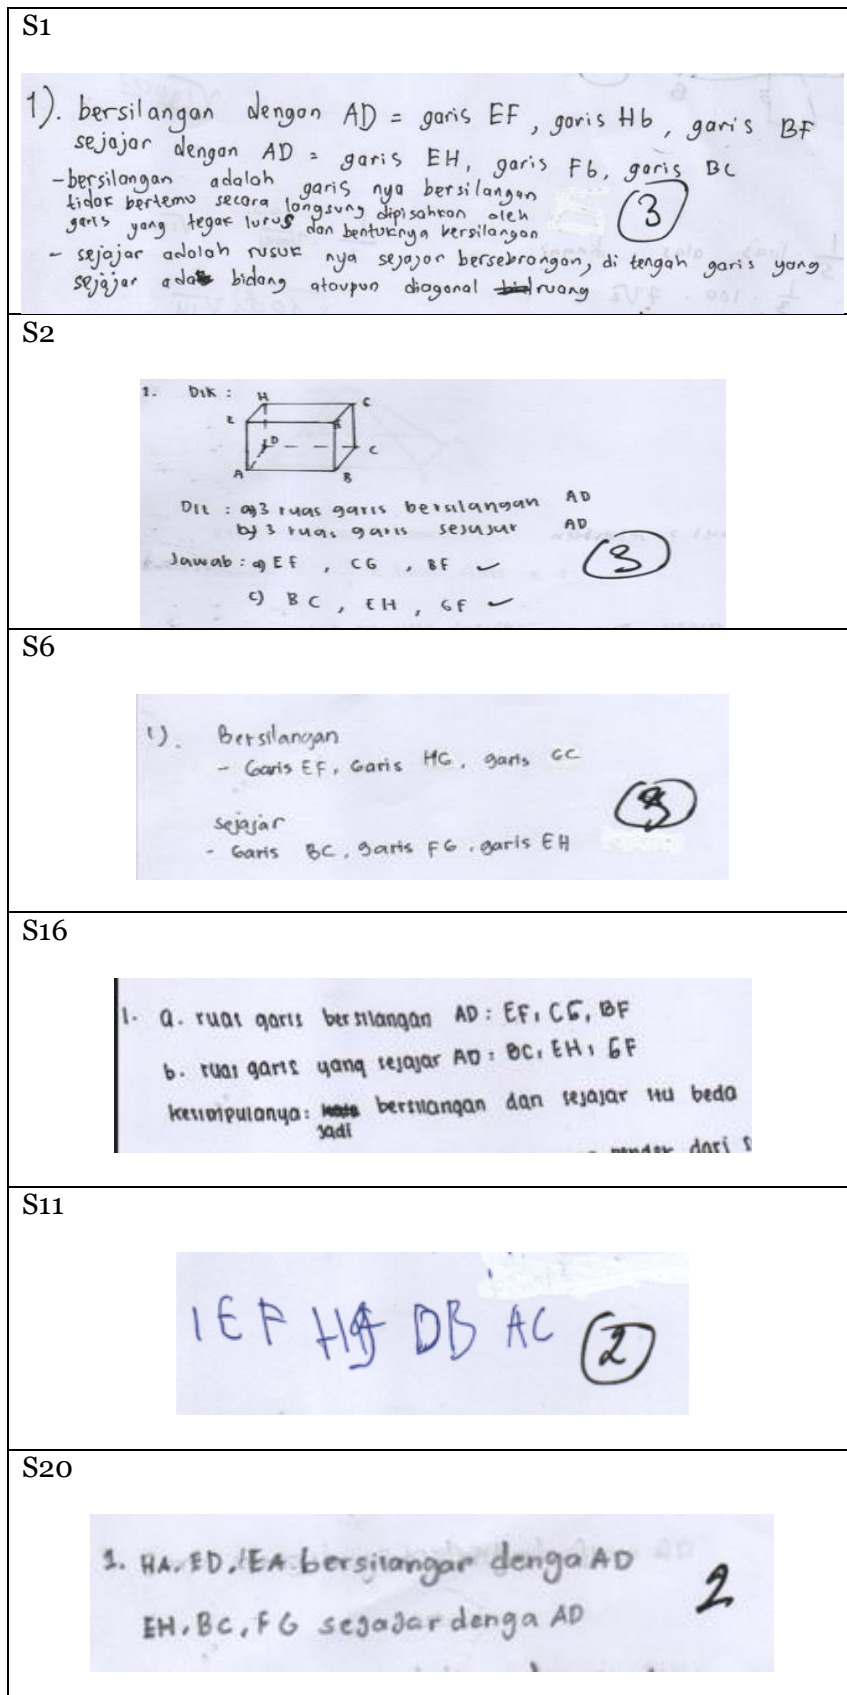 S1
1). bersilangan dengan AD = garis EF, garis HG, garis BF
sejajar dengan AD = garis EH, garis FG, garis BC
- bersilangan adalah garis nya bersilangan
tidak bertemu secara langsung dipisahkan oleh
garis yang tegak lurus dan bentuknya bersilangan
3
- sejajar adalah rusuk nya sejajar bersebrongan, di tengah garis yang
sejajar ada bidang ataupun diagonal ruang
S2
1. Dik :
H
G
E
F
D
C
A
B
Dit : a) 3 ruas garis bersilangan AD
b) 3 ruas garis sejajar AD
Jawab : a) EF , CG , BF ✓
c) BC , EH , GF ✓
3
S6
1). Bersilangan
- Garis EF, Garis HG, garis GC
sejajar
- Garis BC, garis FG, garis EH
S16
1. a. ruas garis bersilangan AD : EF, CG, BF
b. ruas garis yang sejajar AD : BC, EH, GF
kesimpulanya: bersilangan dan sejajar itu beda
jadi
dari
S11
1 EF HG DB AC 2
S20
1. HA, ED, EA bersilangar denga AD
EH, BC, FG sejajar denga AD
2